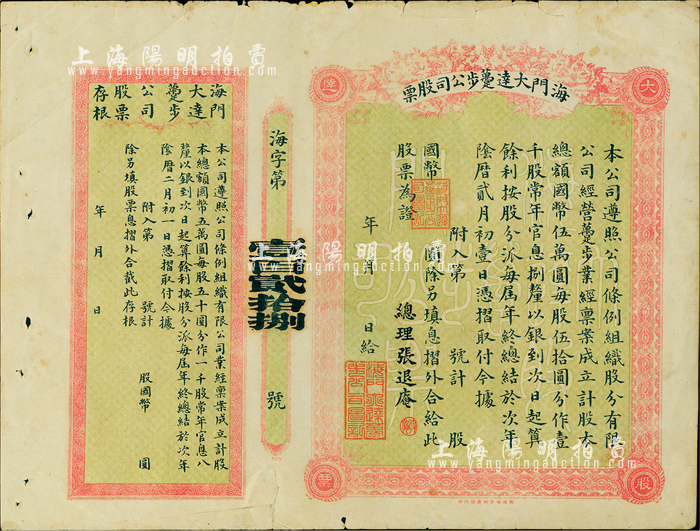 上海陽明拍賣
www.yangmingauction.com
大
達
海門大達躉步公司股票
本公司遵照公司條例組織股份有限
公司經營躉步業經稟業成立計股本
總額國幣伍萬圓每股伍拾圓分作壹
千股常年官息捌釐以銀到次日起算
餘利按股分派每屆年終總結於次年
陰曆貳月初壹日憑摺取付今據
附入第 號計 股
國幣 圓除另填息摺外合給此
股票為證
年 月 日給
總理張退庵
股
票
海字第
壹百貳拾捌
號
海門
大達
躉步
公司
股票
存根
本公司遵照公司條例組織有限公司業經稟業成立計股
本總額國幣五萬圓每股五十圓分作一千股常年官息八
釐以銀到次日起算餘利按股分派每屆年終總結於次年
陰曆二月初一日憑摺取付今據
附入第 號計 股國幣 圓
除另填股票息摺外合截此存根
年 月 日
上海陽明拍賣
www.yangmingauction.com